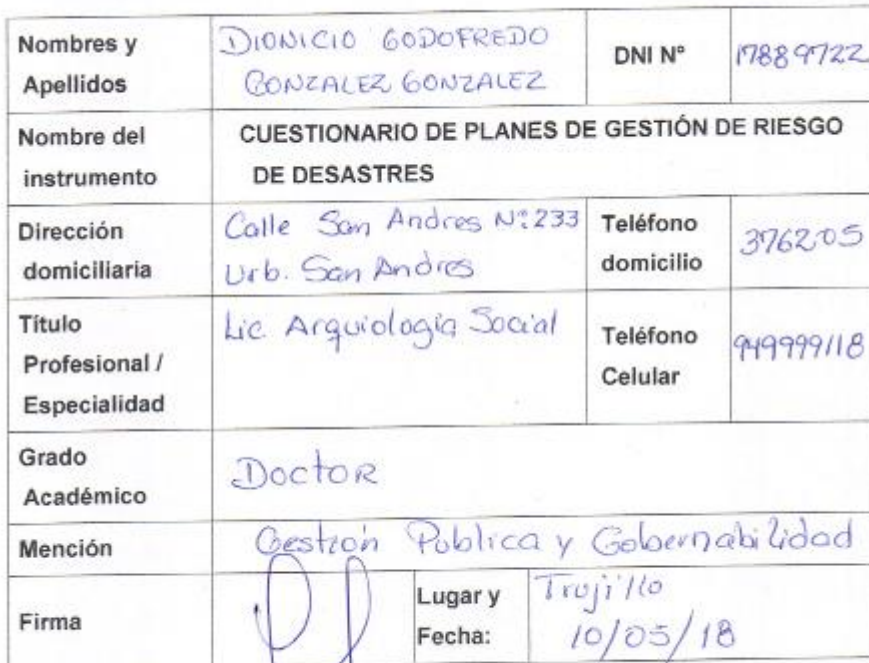 Nombres y Apellidos
DIONICIO GODOFREDO
GONZALEZ GONZALEZ
DNI Nº
17889722
Nombre del instrumento
CUESTIONARIO DE PLANES DE GESTIÓN DE RIESGO
DE DESASTRES
Dirección domiciliaria
Calle San Andres Nº 233
Urb. San Andres
Teléfono domicilio
376205
Título Profesional / Especialidad
Lic. Arquiologia Social
Teléfono Celular
949999118
Grado Académico
DoctoR
Mención
Gestion Publica y Gobernabilidad
Firma
Lugar y Fecha:
Trujillo
10/05/18